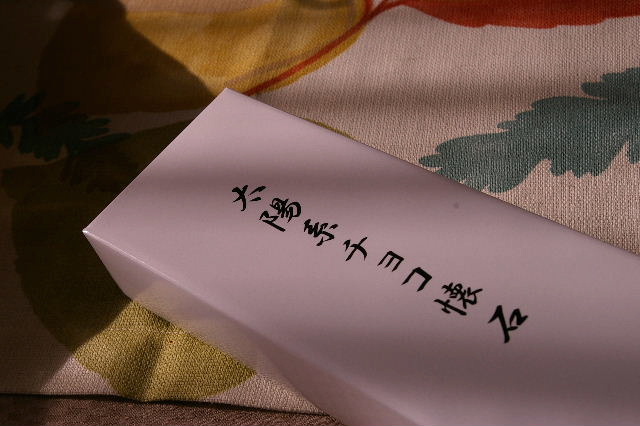 太陽系チョコ懐石